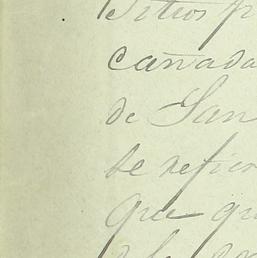 Sitios p
cañada
de San
se refier
que qu